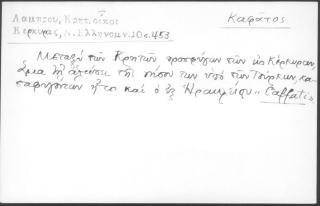 Λαμπρου, Κρητ. οἶκοι
Κερκυρας, Ν. Ελληνομν. 10ος. 453
Καφάτος
Μεταξὺ τῶν Κρητῶν προσφύγων τῶν εἰς Κέρκυραν,
ἅμα τῇ ἁλώσει τῆς νήσου των ὑπὸ τῶν Τούρκων, κα-
ταφυγόντων ἦτο καὶ ὁ ἐξ Ἡρακλείου « Caffati »